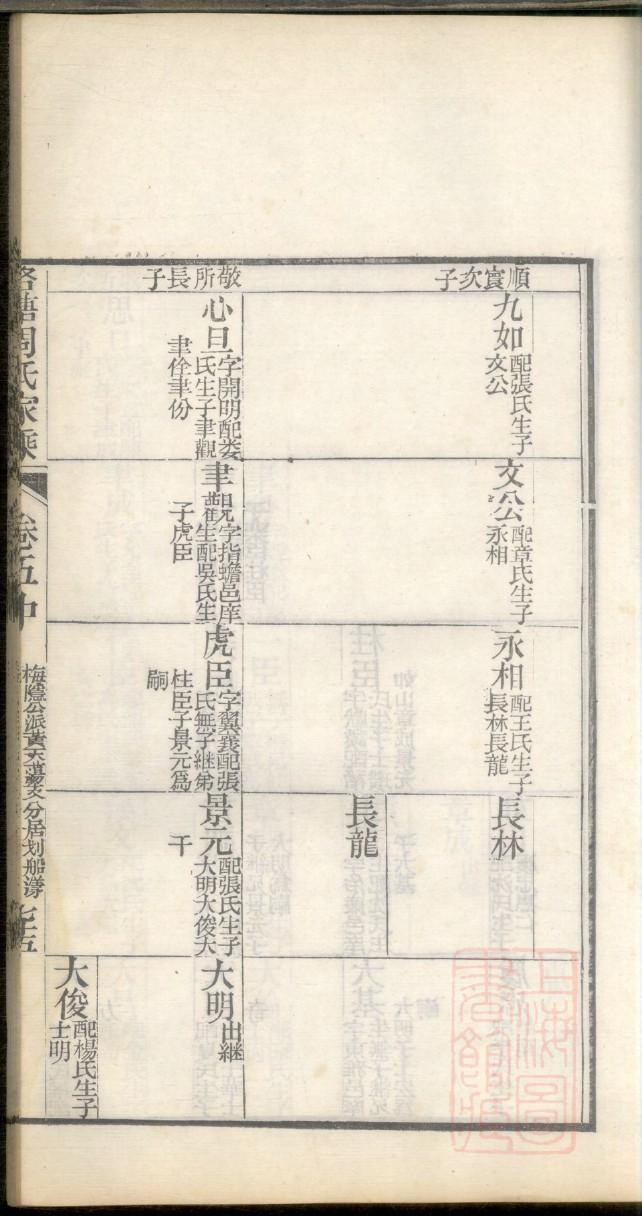 順寰次子
九如 配張氏生子
文公
文公 配章氏生子
永相
永相 配王氏生子
長林長龍
長林
長龍
敬所長子
心旦 字開明配娄
氏生子聿觀
聿佺聿份
聿觀 字指蟾邑庠
生配吳氏生
子虎臣
虎臣 字翼義配張
氏無子継弟
桂臣子景元為
嗣
景元 配張氏生子
大明大俊大
千
大明 出継
大俊 配楊氏生子
士明
洛塘周氏家乘
卷五中
梅隱公派黃天蕩支分居划船漾
七十五
上海圖書館藏